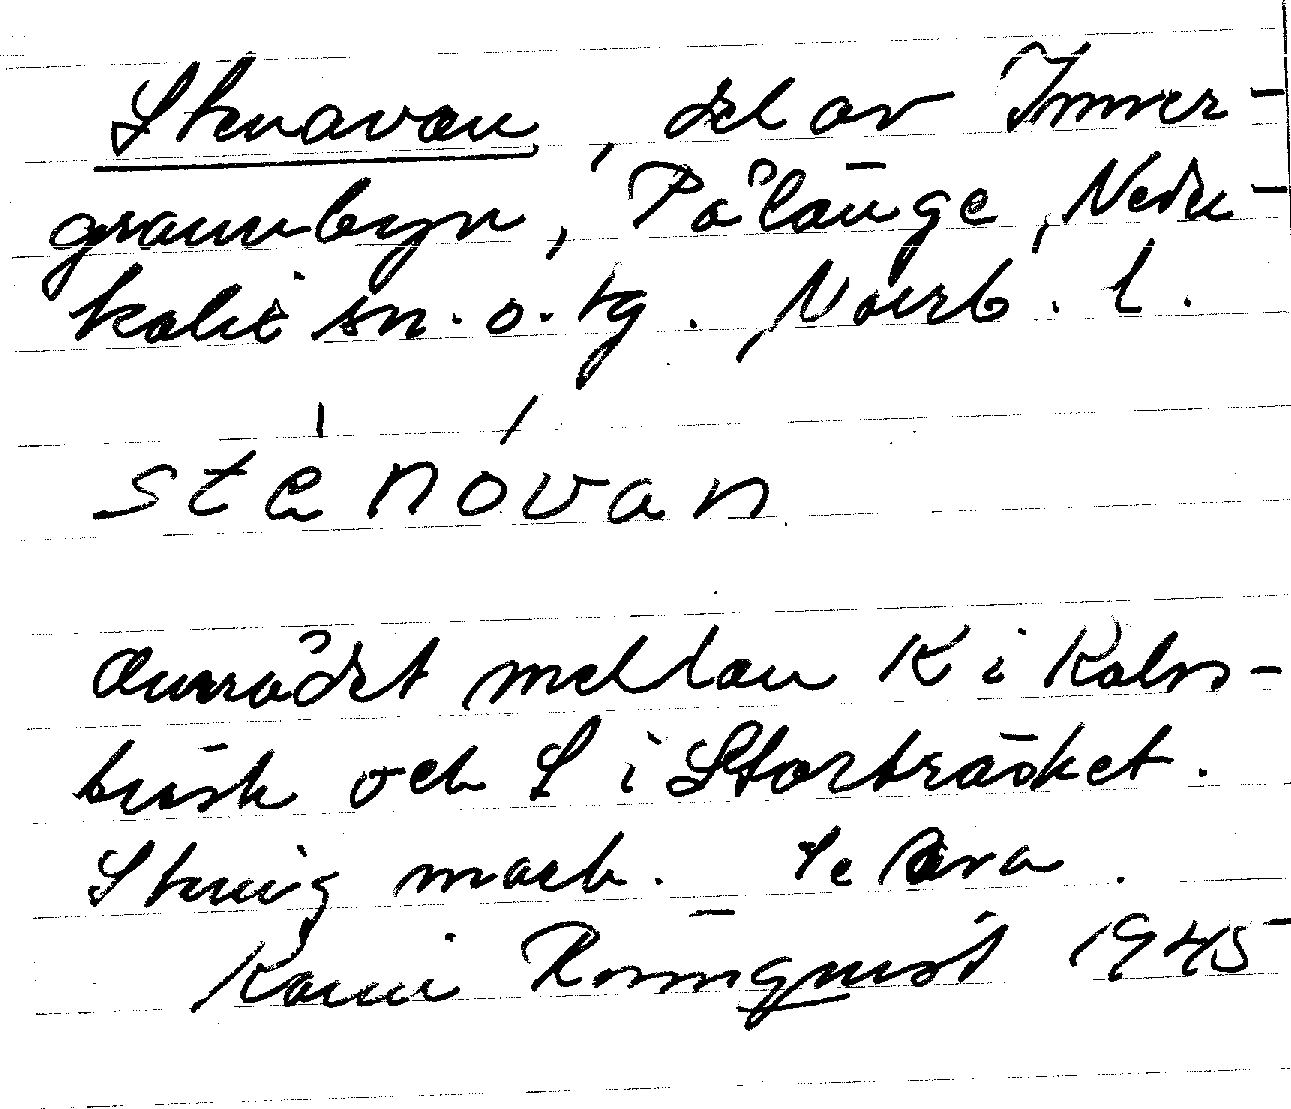 Stenavan, del av Inner-
grannbyn, Pålänge, Neder-
kalix sn. o. tg. Norrb. l.
ste̍nóvan
Området mellan K i Kalvs-
träsk och S i Storträsket.
Stenig mark. Se Ava.
Karin Rönnqvist 1945